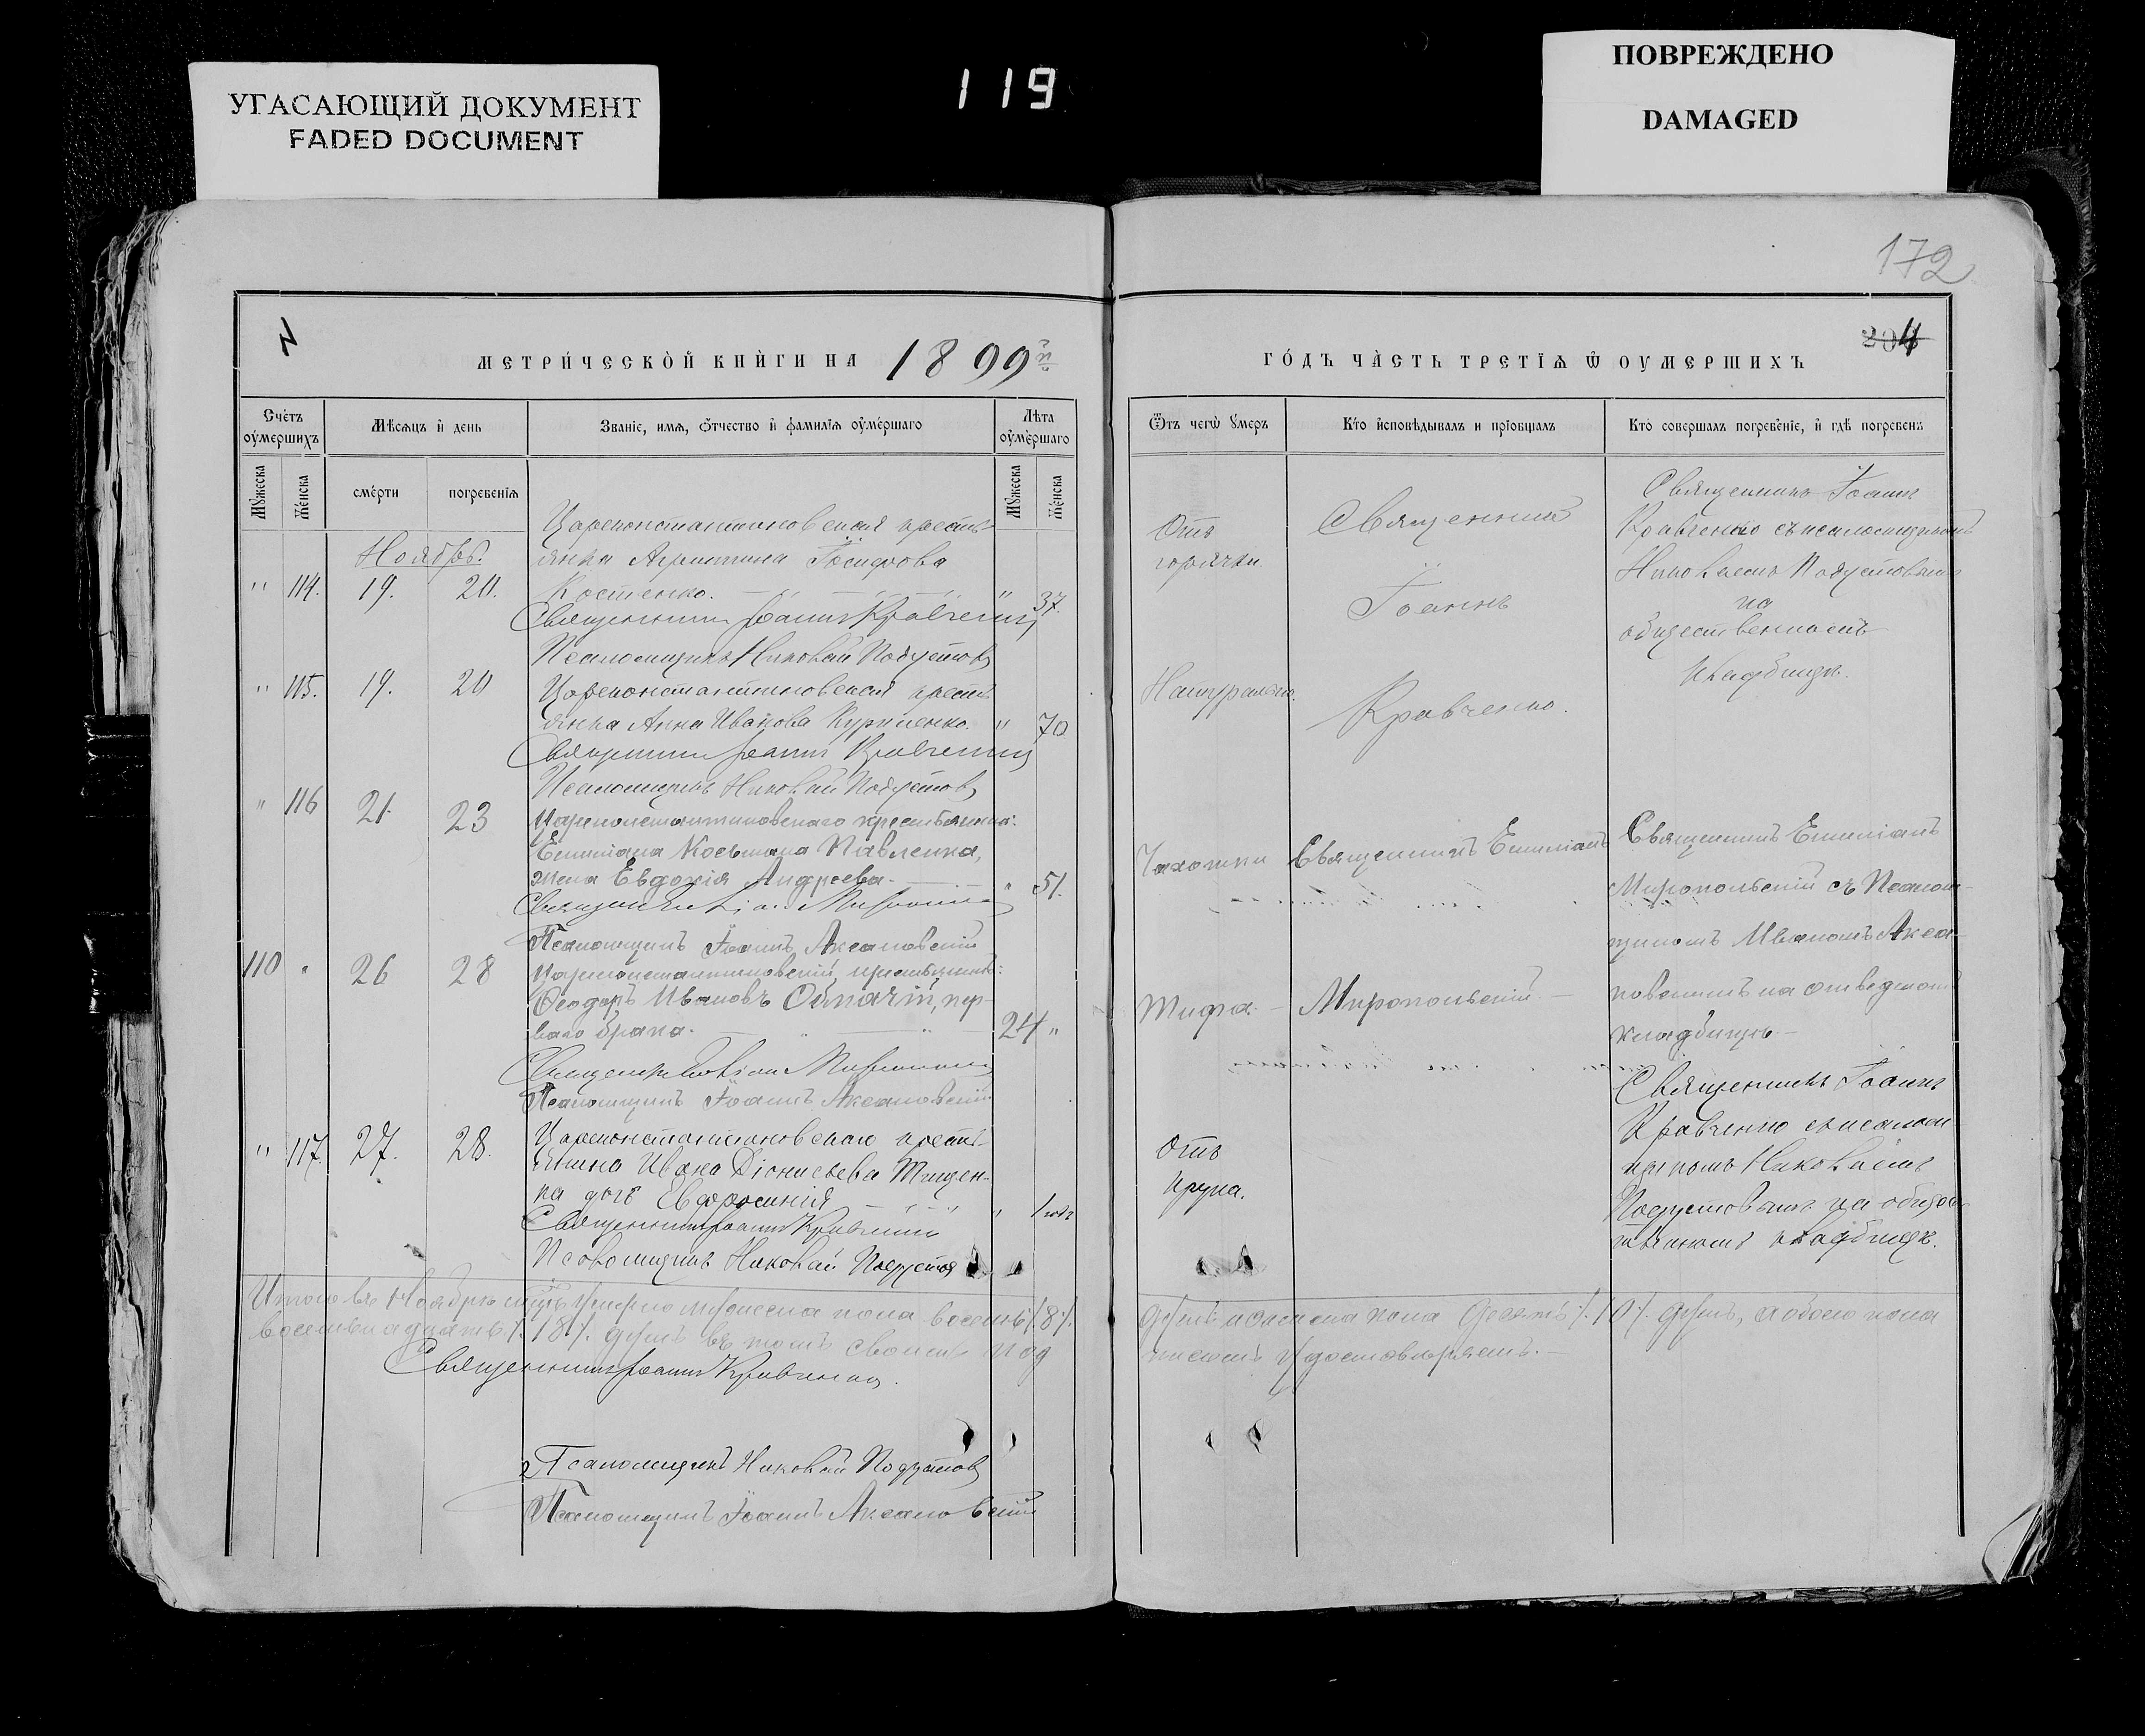 УГАСАЮЩИЙ ДОКУМЕНТ
FADED DOCUMENT
119
ПОВРЕЖДЕНО
DAMAGED
172
204
МЕТРИ́ЧЕСКОЙ КНИ́ГИ НА 1899й
ГО́ДЪ ЧА́СТЬ ТРЕТІѦ Ѿ ОУМЕРШИХЪ
Счетъ оумершихъ
Мѣсѧцъ и день
Званіе, имѧ, ѿчество и фамиліѧ оумершаго
Лѣта оумершаго
Мужеска
Женска
смерти
погребеніѧ
Мужеска
Женска
Ѿтъ чегѡ умеръ
Кто исповѣдывалъ и пріобщалъ
Кто совершалъ погребеніе, и гдѣ погребены
Ноябрь.
" 114. 19. 20.
Цареконстантиновская кресть-
янка Агриппина Іосифова
Костенко. " 37.
Священникъ Іоаннъ Кравченко
Псаломщикъ Николай Подустовъ
Отъ
горячки.
Священникъ
Іоаннъ
Кравченко.
Священникъ Іоаннъ
Кравченко съ псаломщикомъ
Николаемъ Подустовымъ
на
общественномъ
кладбищѣ.
" 115. 19. 20
Цареконстантиновская кресть-
янка Анна Иванова Куриленко. " 70
Священникъ Іоаннъ Кравченко
Псаломщикъ Николай Подустовъ
Натурально.
" 116 21. 23
Цареконстантиновскаго крестьянина
Емиліана Косьмина Павленка,
жена Евдокія Андреева. " 51.
Псаломщикъ Іоаннъ Аксановскій
Чахотки
Священникъ Емиліанъ
Миропольскій
Священникъ Емиліанъ
Миропольскій съ Псалом-
щикомъ Иваномъ Акса-
новскимъ на отведеном
кладбищѣ
110 " 26 28
Цареконстантиновскій крестьянинъ
Ѳеодоръ Ивановъ пер-
ваго брака. 24 "
Псаломщикъ Іоаннъ Аксановскій
Тифа
" 117. 27. 28.
Цареконстантиновскаго кресть-
янина Ивана Діонисьева Тищен-
ка дочь Евфросинія " 1 годъ
Священникъ Іоаннъ Кравченко
Псаломщикъ Николай Подустовъ
Отъ
крупа.
Священникъ Іоаннъ
Кравченко съ псалом-
щикомъ Николаемъ
Подустовымъ на общес-
твенномъ кладбищѣ.
Итого въ Ноябрѣ мѣсяцѣ умерло мужеска пола восемь /.8/. душъ и женска пола десять /.10/. душъ, а обоего пола
восемьнадцать /.18/. душъ въ томъ своимъ подписомъ удостовѣряемъ.
Священникъ Іоаннъ Кравченко.
Псаломщикъ Николай Подустовъ
Псаломщикъ Іоаннъ Аксановскій